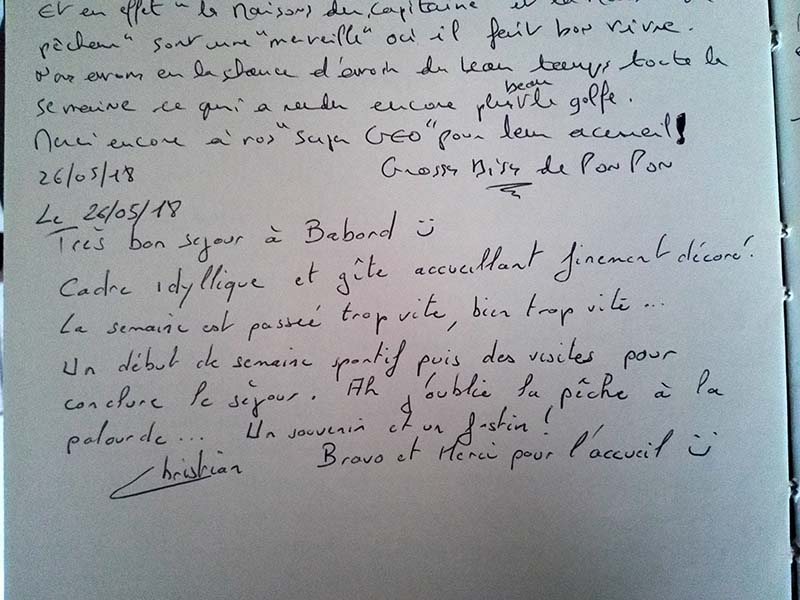 Et en effet "la Maisons du Capitaine et la
pêcheur" sont une "merveille" où il fait bon vivre.
Nous avons eu la chance d'avoir du beau temps toute la
semaine ce qui a rendu encore plus beau le golfe.
Merci encore à vos "Super GEO" pour leur accueil!
26/05/18 Grosses Bises de PonPon
Le 26/05/18
Très bon sejour à Babord :)
Cadre idyllique et gîte accueillant finement décoré!
La semaine est passée trop vite, bien trop vite ...
Un début de semaine sportif puis des visites pour
conclure le séjour. Ah j'oublie la pêche à la
palourde ... Un souvenir et un festin!
Christian Bravo et Merci pour l'accueil :)